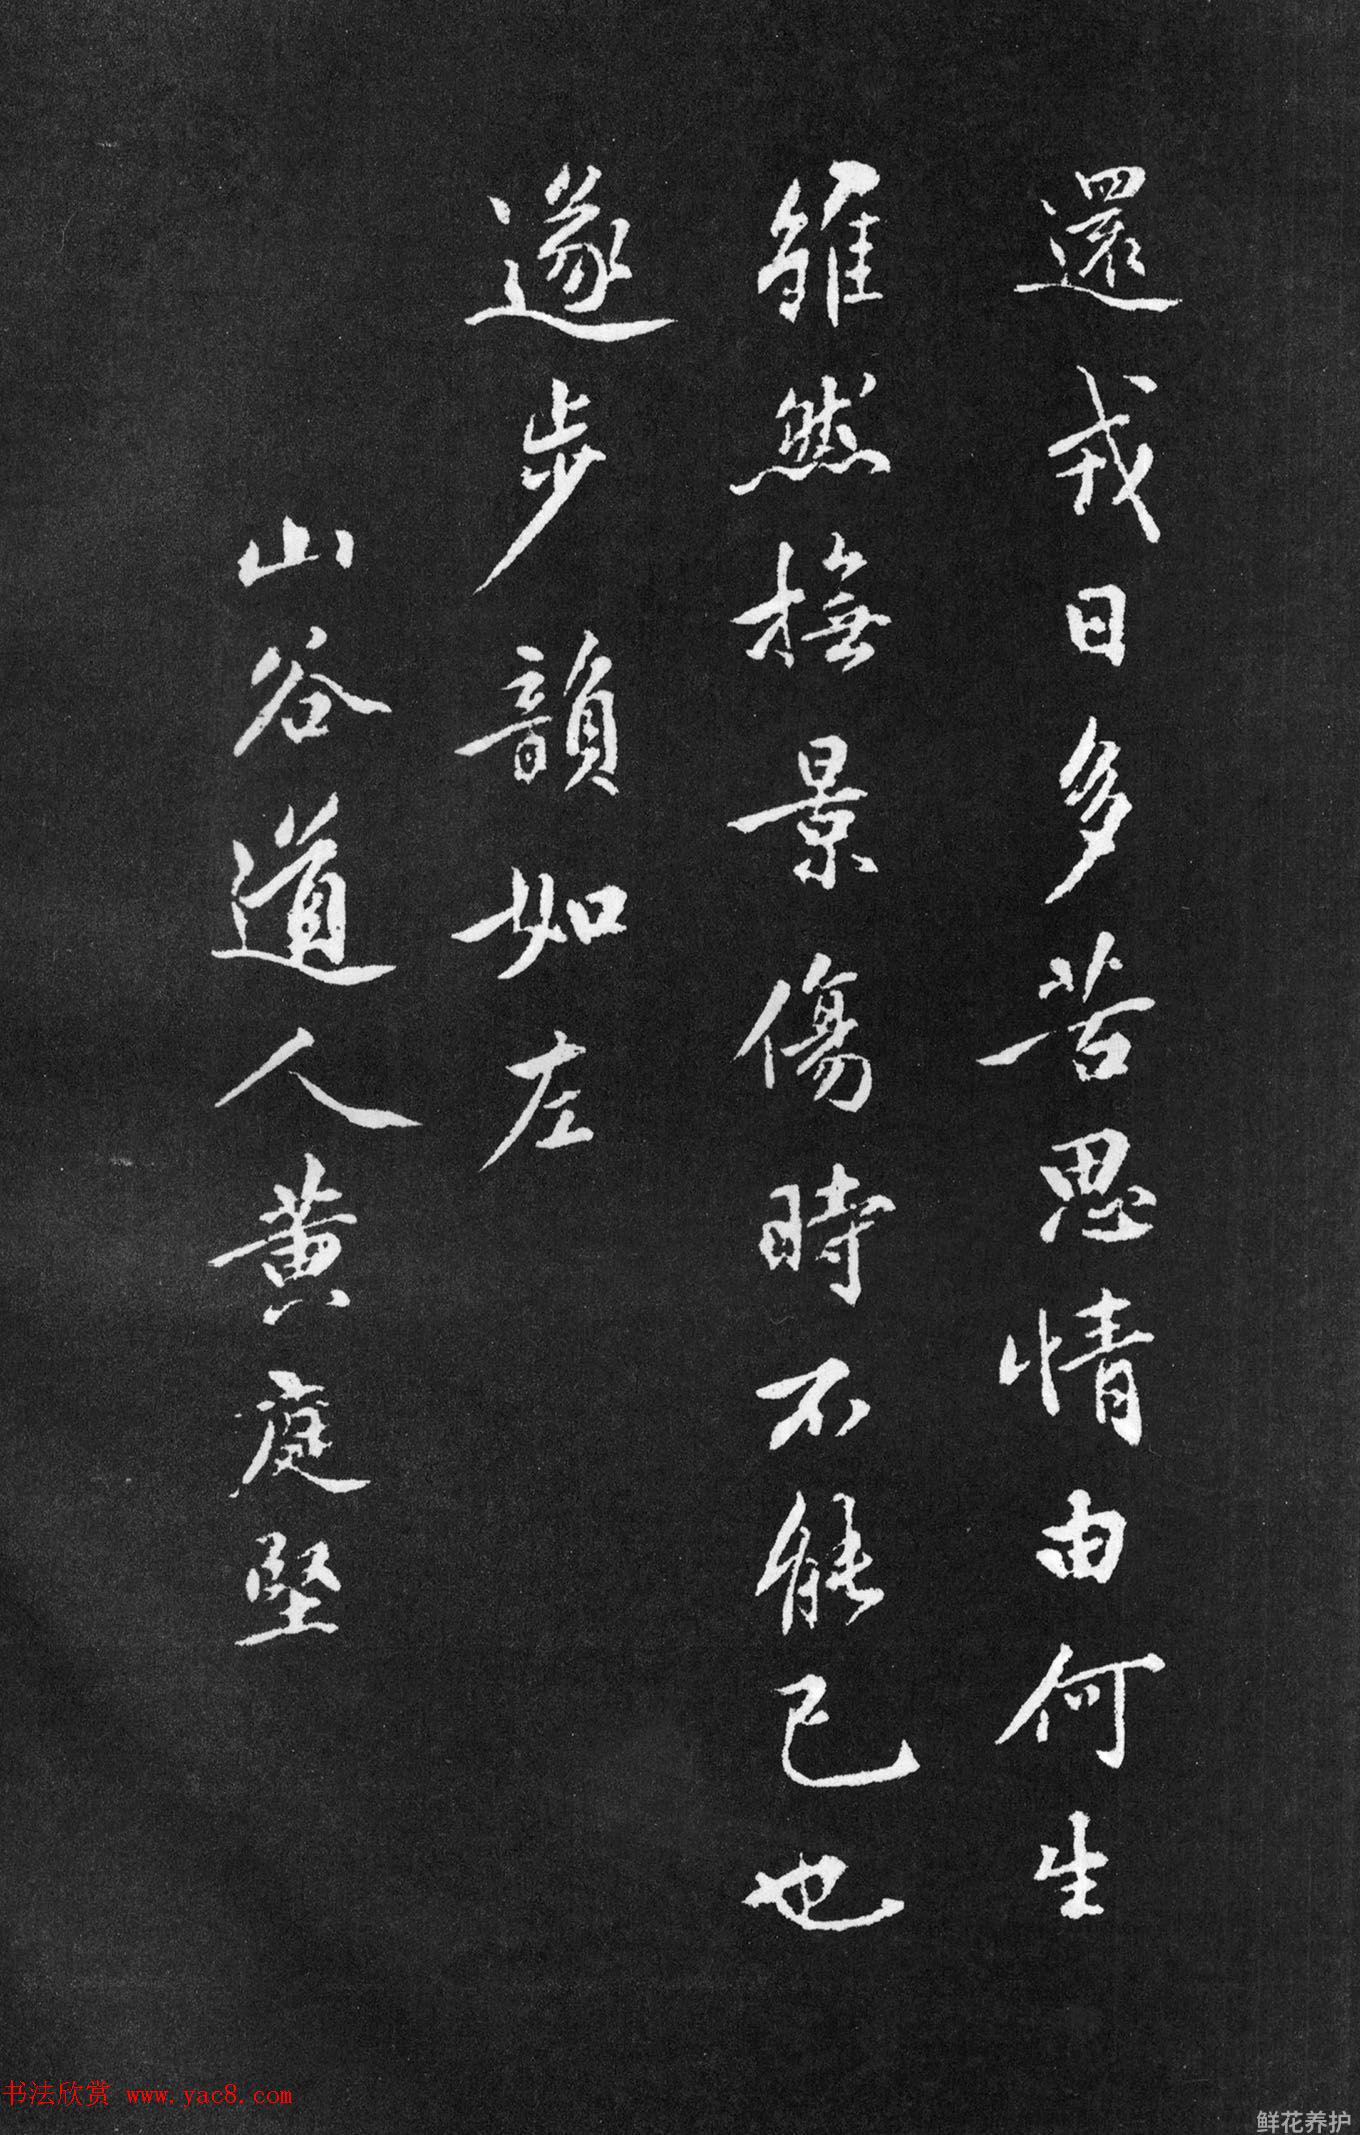 還戎日多苦思情由何生
雖然撫景傷時不能已也
遂步韻如左
山谷道人黄庭堅
书法欣赏 www.yac8.com
鲜花养护